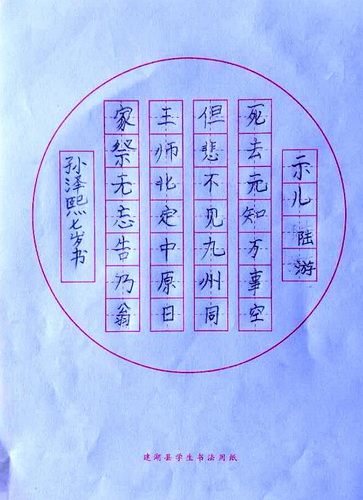 示儿 陆游
死去元知万事空
但悲不见九州同
王师北定中原日
家祭无忘告乃翁
孙泽熙七岁书
建湖县学生书法用纸